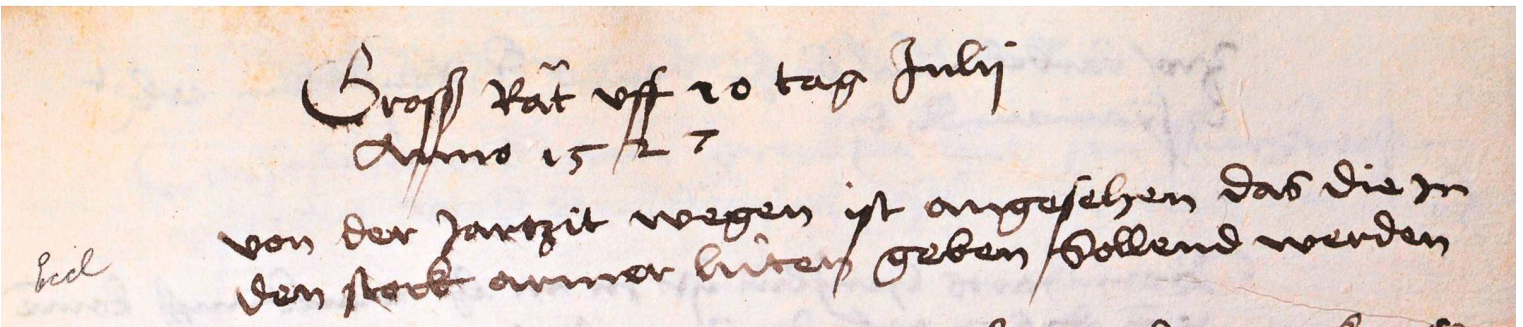 Gross Rât uff 20 tag Julij
Anno 1527
von der Jartzit wegen ist angesehen das die In
den stock armer lüten geben Söllend werden
Eccl